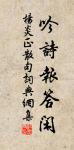 吟詩報答閑
楊炎正散句詞典網集